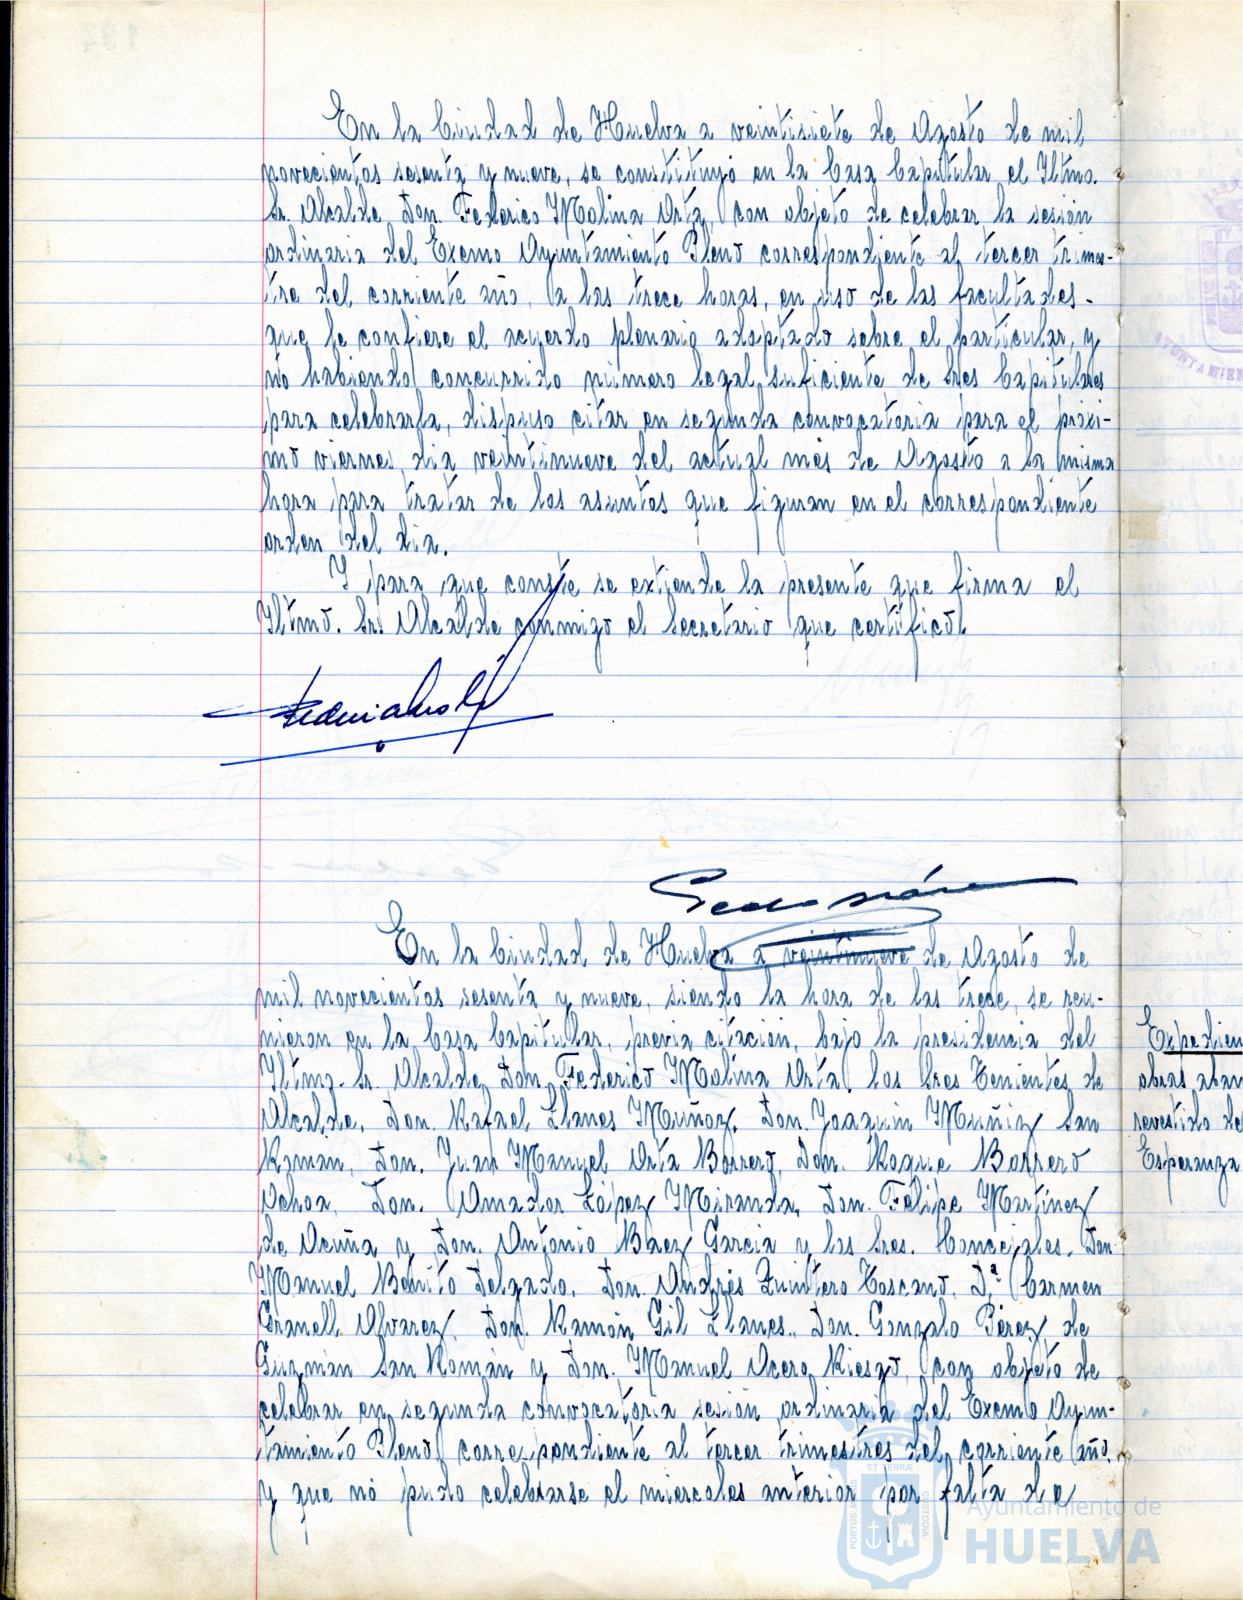 En la Ciudad de Huelva a veintisiete de Agosto de mil
novecientos sesenta y nueve, se constituyó en la Casa Capitular el Iltmo.
Sr. Alcalde Don Federico Molina Orta, con objeto de celebrar la sesión
ordinaria del Excmo Ayuntamiento Pleno correspondiente al tercer trimes-
tre del corriente año, a las trece horas, en uso de las facultades-
que le confiere el acuerdo plenario adoptado sobre el particular, y
no habiendo concurrido número legal suficiente de Sres Capitulares
para celebrarla, dispuso citar en segunda convocatoria para el próxi-
mo viernes, día veintinueve del actual mes de Agosto a la misma
hora para tratar de los asuntos que figuran en el correspondiente
orden del día.
Y para que conste se extiende la presente que firma el
Iltmo. Sr. Alcalde conmigo el Secretario que certifico.
En la Ciudad de Huelva a veintinueve de Agosto de
mil novecientos sesenta y nueve, siendo la hora de las trece, se reu-
nieron en la Casa Capitular, previa citación, bajo la presidencia del
Iltmo. Sr. Alcalde Don Federico Molina Orta, los Sres Tenientes de
Alcalde, Don. Rafael Llanes Muñoz, Don. Joaquin Muñiz San
Román, Don. Juan Manuel Orta Borrero, Don. Roque Borrero
Ochoa, Don. Amador López Miranda, Don. Felipe Martínez
de Acuña y Don. Antonio Baez Garcia y los Sres. Concejales, Don
Manuel Benito Delgado, Don. Andrés Quintero Toscano, Dª Carmen
Granell Alvarez, Don. Ramón Gil Llanes., Don. Gonzalo Pérez de
Guzmán San Román y Don. Manuel Acero Riesgo, con objeto de
celebrar en segunda convocatoria sesión ordinaria del Excmo Ayun-
tamiento Pleno, correspondiente al tercer trimestres del corriente año,
y que no pudo celebrarse el miercoles anterior por falta de
Expedien
obras aban
revestido de
Esperanza
Ayuntamiento de
HUELVA
PORTUS
ET TERRAE
CUSTODIA